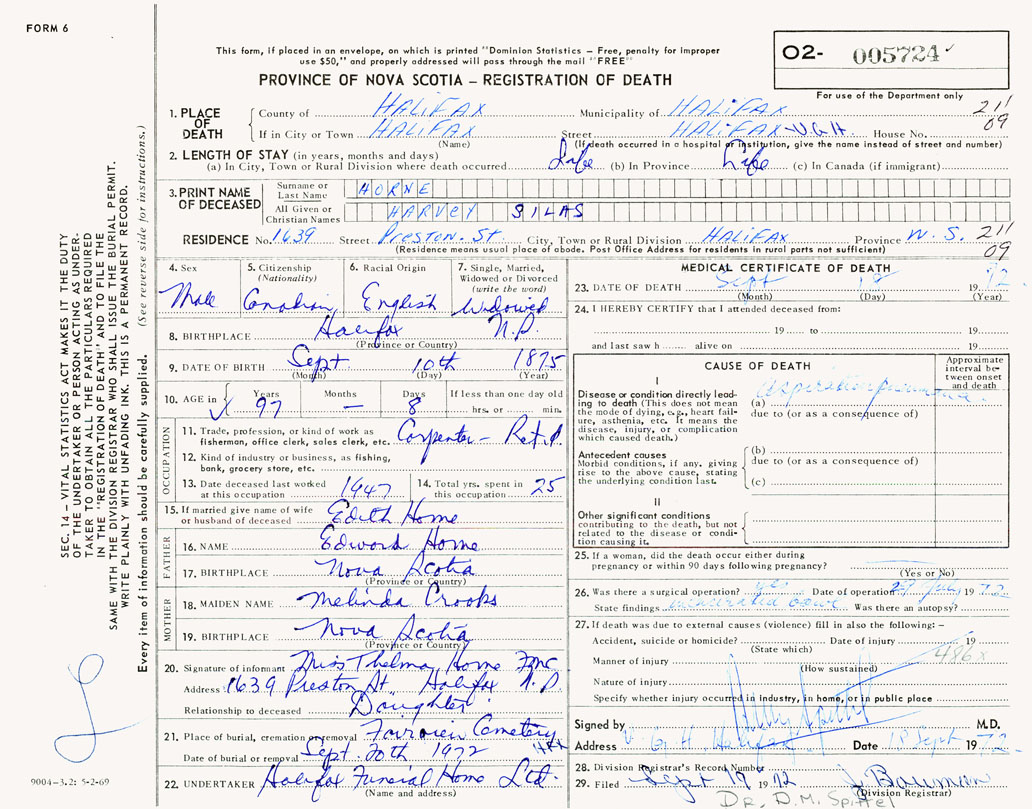 FORM 6
This form, if placed in an envelope, on which is printed "Dominion Statistics – Free, penalty for improper
use $50," and properly addressed will pass through the mail "FREE"
PROVINCE OF NOVA SCOTIA – REGISTRATION OF DEATH
O2- 005724
For use of the Department only
1. PLACE OF DEATH
County of HALIFAX Municipality of HALIFAX 211
If in City or Town HALIFAX Street HALIFAX - V.G.H. House No. 09
(Name) (If death occurred in a hospital or institution, give the name instead of street and number)
2. LENGTH OF STAY (in years, months and days)
(a) In City, Town or Rural Division where death occurred Life (b) In Province Life (c) In Canada (if immigrant)
3. PRINT NAME OF DECEASED
Surname or Last Name HORNE
All Given or Christian Names HARVEY SILAS
RESIDENCE No. 1639 Street Preston St. City, Town or Rural Division HALIFAX Province N.S. 211
(Residence means usual place of abode. Post Office Address for residents in rural parts not sufficient) 09
4. Sex Male
5. Citizenship (Nationality) Canadian
6. Racial Origin English
7. Single, Married, Widowed or Divorced (write the word) Widowed
8. BIRTHPLACE Halifax N.S.
(Province or Country)
9. DATE OF BIRTH Sept 10th 1875
(Month) (Day) (Year)
10. AGE in Years 97 Months – Days 8 If less than one day old hrs. or min.
OCCUPATION
11. Trade, profession, or kind of work as
fisherman, office clerk, sales clerk, etc. Carpenter – Ret.
12. Kind of industry or business, as fishing,
bank, grocery store, etc.
13. Date deceased last worked at this occupation 1947
14. Total yrs. spent in this occupation 25
15. If married give name of wife
or husband of deceased Edith Horne
FATHER
16. NAME Edward Horne
17. BIRTHPLACE Nova Scotia
(Province or Country)
MOTHER
18. MAIDEN NAME Melinda Crooks
19. BIRTHPLACE Nova Scotia
(Province or Country)
20. Signature of informant Miss Thelma Horne
Address 1639 Preston St. Halifax N.S.
Relationship to deceased Daughter
21. Place of burial, cremation or removal Fairview Cemetery
Date of burial or removal Sept. 20th 1972
22. UNDERTAKER Halifax Funeral Home Ltd.
(Name and address)
MEDICAL CERTIFICATE OF DEATH
23. DATE OF DEATH Sept 18 1972
(Month) (Day) (Year)
24. I HEREBY CERTIFY that I attended deceased from:
19 to 19
and last saw h alive on 19
CAUSE OF DEATH
Approximate interval between onset and death
I
Disease or condition directly leading to death (This does not mean the mode of dying, e.g., heart failure, asthenia, etc. It means the disease, injury, or complication which caused death.)
(a) aspiration pneumonia
due to (or as a consequence of)
Antecedent causes
Morbid conditions, if any, giving rise to the above cause, stating the underlying condition last.
(b)
due to (or as a consequence of)
(c)
II
Other significant conditions
contributing to the death, but not related to the disease or condition causing it.
25. If a woman, did the death occur either during
pregnancy or within 90 days following pregnancy?
(Yes or No)
26. Was there a surgical operation? yes Date of operation 1972
State findings Was there an autopsy?
27. If death was due to external causes (violence) fill in also the following: –
Accident, suicide or homicide? Date of injury 19
(State which)
Manner of injury 486x
(How sustained)
Nature of injury
Specify whether injury occurred in industry, in home, or in public place
Signed by M.D.
Address V.G.H. Halifax Date 18 Sept 1972
28. Division Registrar's Record Number
29. Filed Sept 19 1972 J. Bauman
(Division Registrar)
DR. D.M. Spittel
SEC. 14 – VITAL STATISTICS ACT MAKES IT THE DUTY
OF THE UNDERTAKER OR PERSON ACTING AS UNDER-
TAKER TO OBTAIN ALL THE PARTICULARS REQUIRED
IN THE "REGISTRATION OF DEATH" AND TO FILE THE
SAME WITH THE DIVISION REGISTRAR WHO SHALL ISSUE THE BURIAL PERMIT.
WRITE PLAINLY WITH UNFADING INK. THIS IS A PERMANENT RECORD.
Every item of information should be carefully supplied. (See reverse side for instructions.)
9004-3.2: 5-2-69